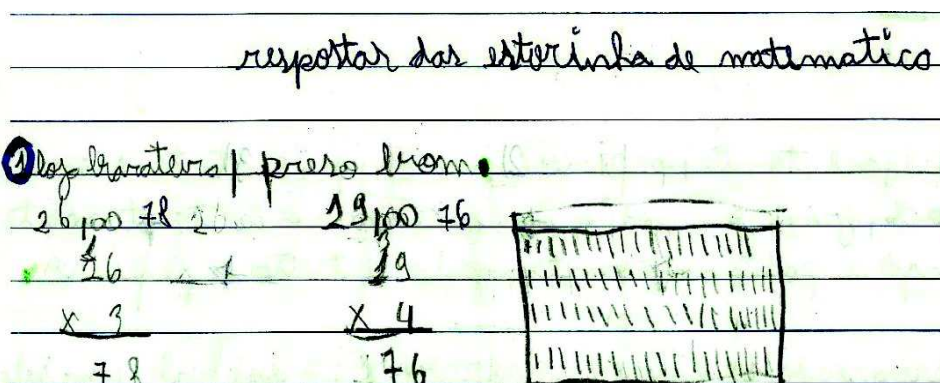 respostas das estorinha de matematica
1 loja barateira | preso bom.
26,00 78 19,00 76
26 19
x 3 x 4
78 76